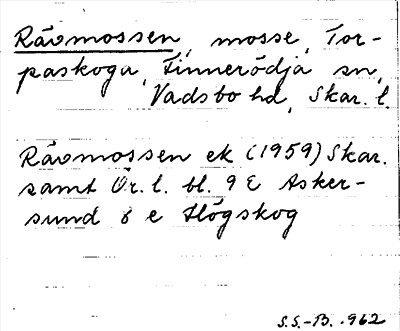 Rävmossen, mosse, Tor-
paskoga, Finnerödja sn,
Vadsbo hd, Skar. l.
Rävmossen ek (1959) Skar.
samt Ör. l. bl. 9 E Asker-
sund 8 e Högskog
S.S.-B. 962